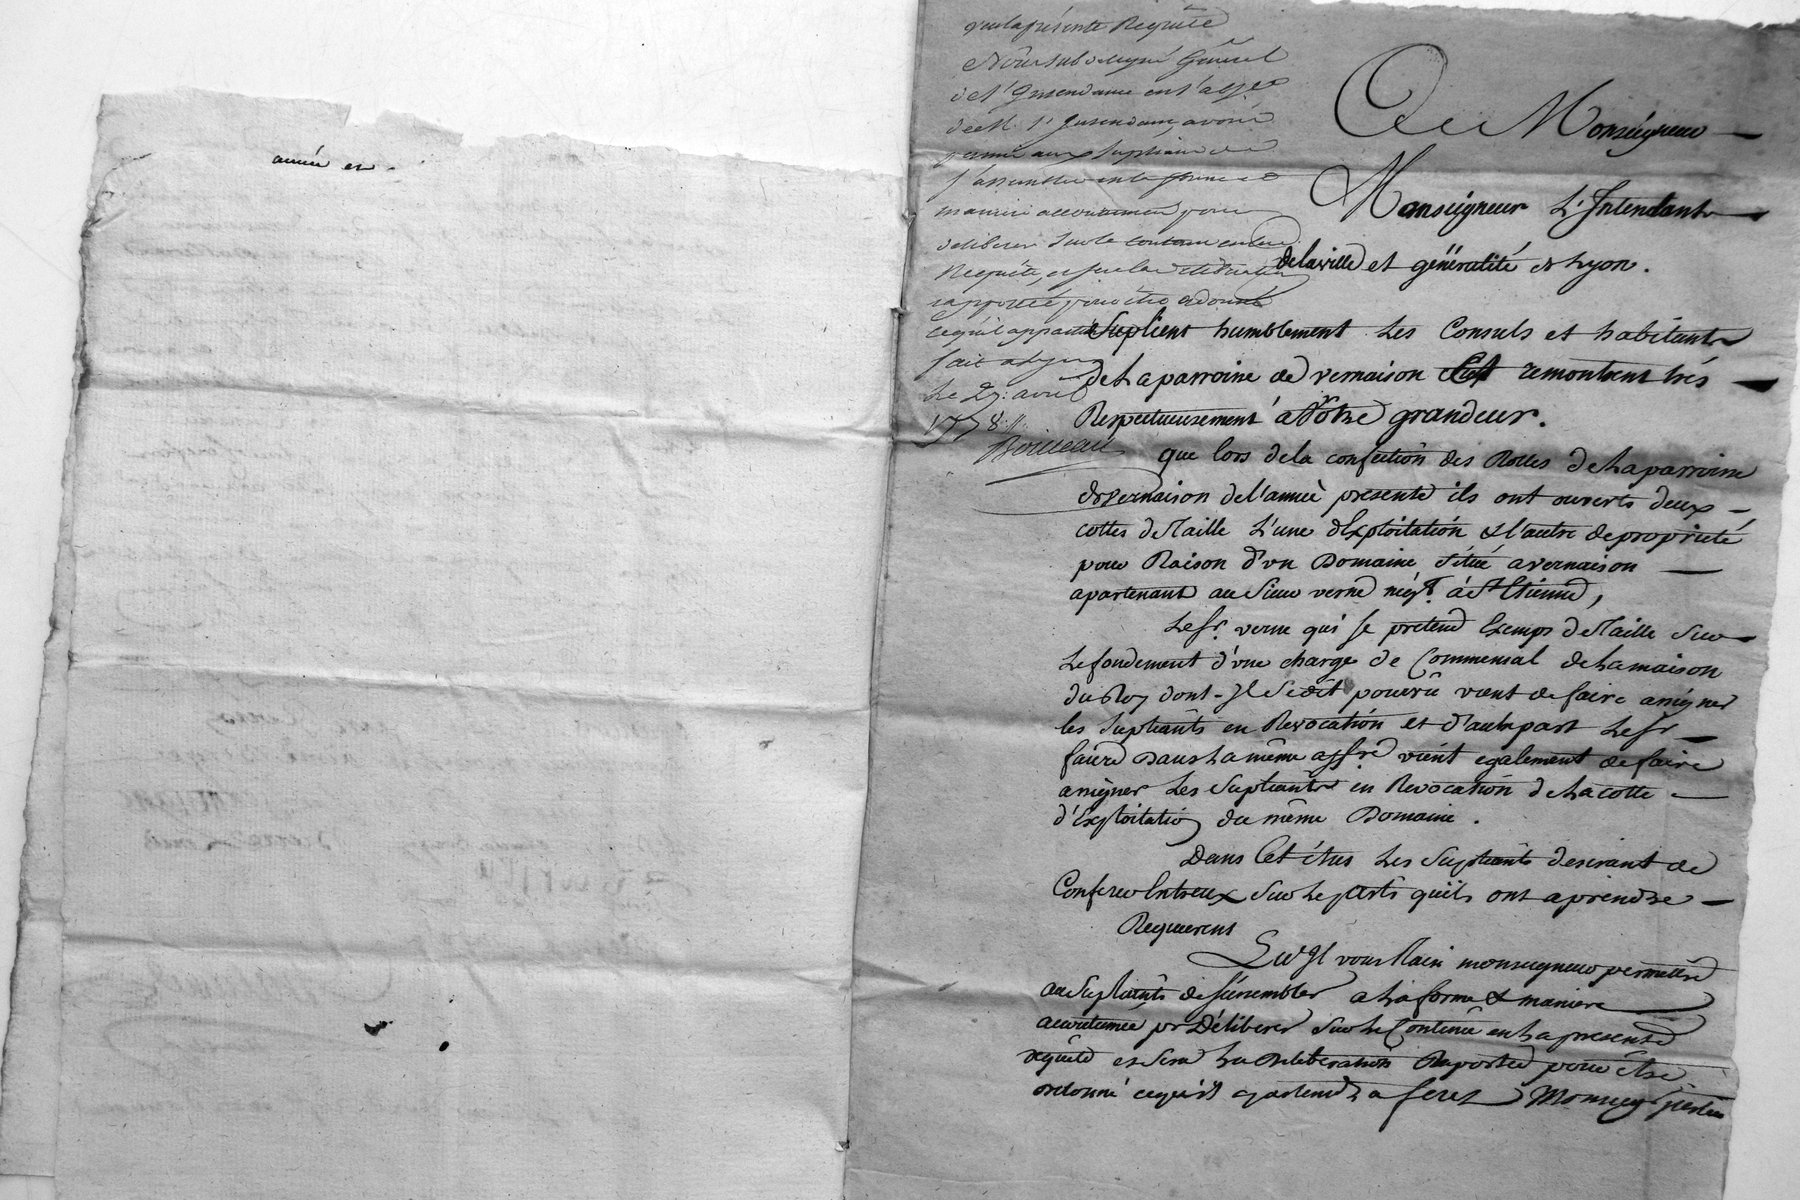 année et
vu la présente Requête
Nous subdelegué Général
de l'Intendance en l'abs.ce
de M. l'Intendant, avons
permis aux supliants de
s'assembler en la forme et
maniere accoutumée pour
deliberer sur le contenu en lad.
Requête, et sur la deliberation
rapportée pour être ordonné
ce qu'il appartiendra
fait a Lyon
Le 27. avril
1778 //.
Boilleau
A Monseigneur
Monseigneur L'Intendant
de la ville et généralité de Lyon.
Suplient humblement Les Consuls et habitants
de La parroisse de vernaison Et remontrent trés
Respectueusement a Votre grandeur.
que lors de la confection des Rolles de La parroisse
de vernaison de l'année presente ils ont ouverts deux
cottes de Taille L'une d'Exploitation & l'autre de proprieté
pour Raison d'un Domaine situé a vernaison
apartenant au Sieur verne négt. à St. Etienne,
Le Sr. verne qui se pretend Exemps de Taille Sur
Le fondement d'une charge de Commensal de La maison
du Roy dont Il Se dit pourvû vient de faire assigner
les Supliants en Revocation et d'autre part Le Sr
faure Dans La même affre vient egalement de faire
assigner Les Supliants en Revocation de La cotte
d'Exploitation du même Domaine.
Dans Cet état Les Supliants desirant de
Conferer Entreux Sur Le parti quils ont a prendre
Requierent
Qu'Il vous Plaise monseigneur permettre
au Supliants de s'assembler a La forme & maniere
accoutumée pr Déliberer Sur Le Contenu en La presente
requête et Sera La Deliberation Raportée pour être
ordonné ce qu'il apartiendra & feres Monseigr justice